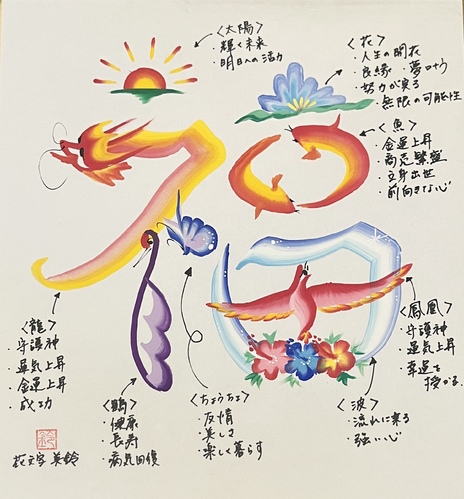 <太陽>
・輝く未来
・明日への活力
<花>
・人生の開花
・良縁・夢叶う
・努力が実る
・無限の可能性
<魚>
・金運上昇
・商売繁盛
・立身出世
・前向きな心
福
<鳳凰>
・守護神
・運気上昇
・幸運を
授かる
<龍>
・守護神
・運気上昇
・金運上昇
・成功
<鶴>
・健康
・長寿
・病気回復
<ちょうちょ>
・友情
・美しさ
・楽しく暮らす
<波>
・流れに乗る
・強い心
鈴
花文字 美鈴